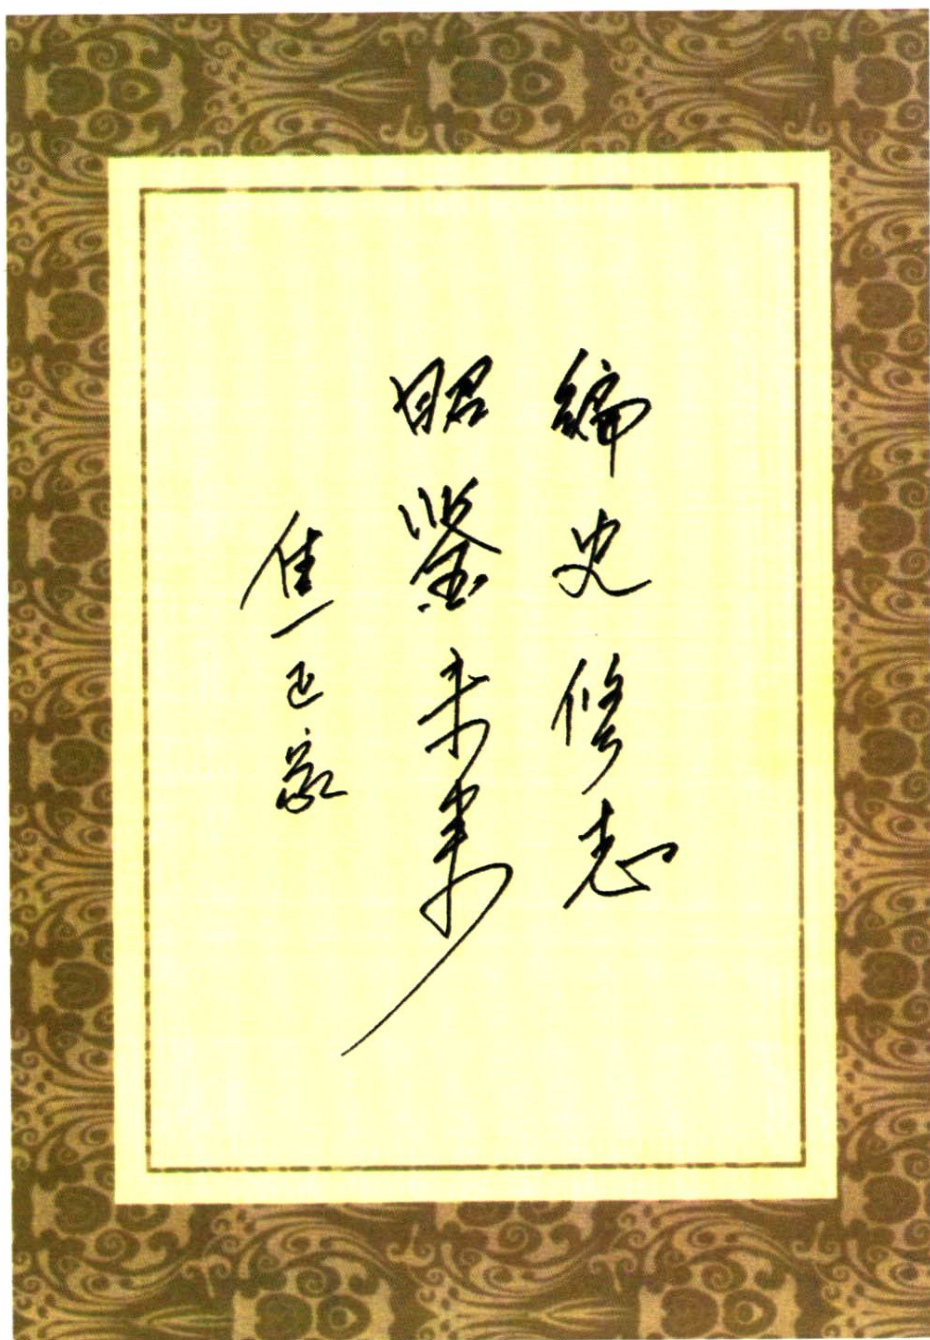 编史修志
昭鉴未来
焦正